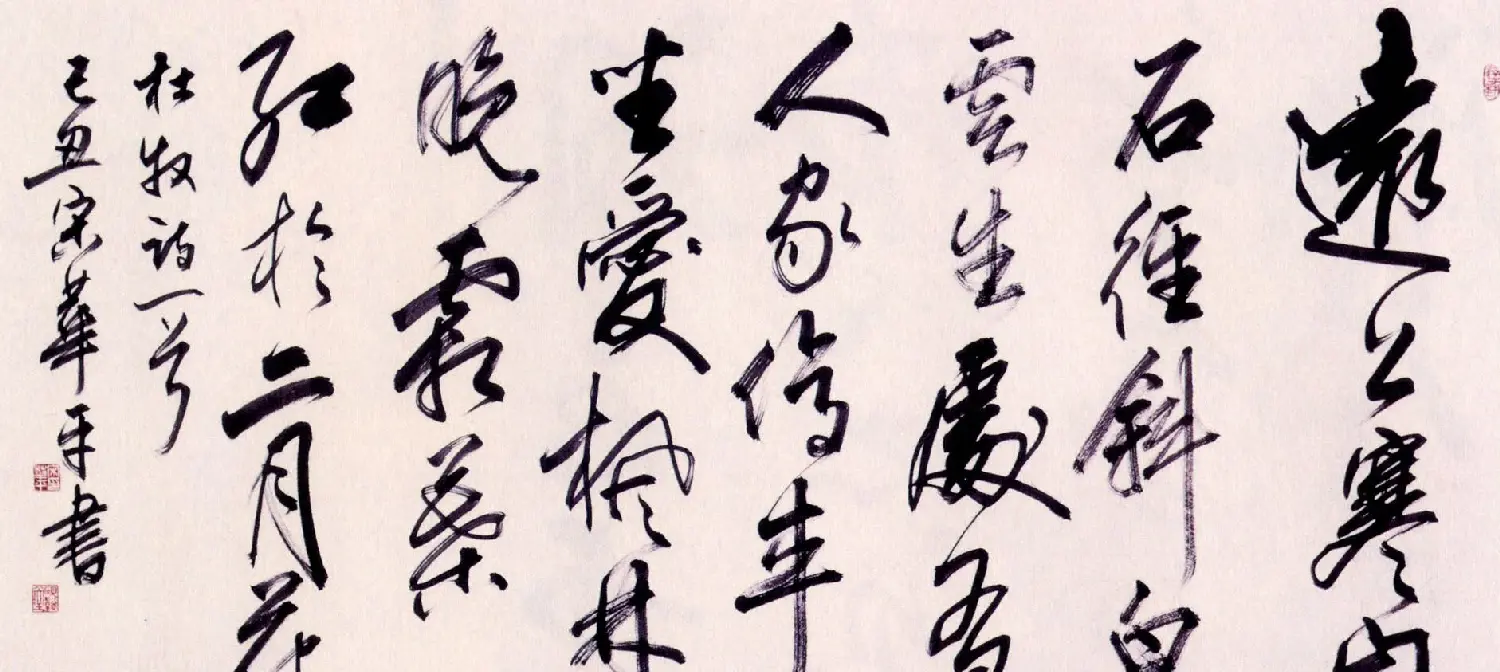 遠上寒山
石徑斜白
雲生處有
人家停車
坐愛楓林
晚霜葉
紅於二月花
杜牧詩一首
己丑宋華平書